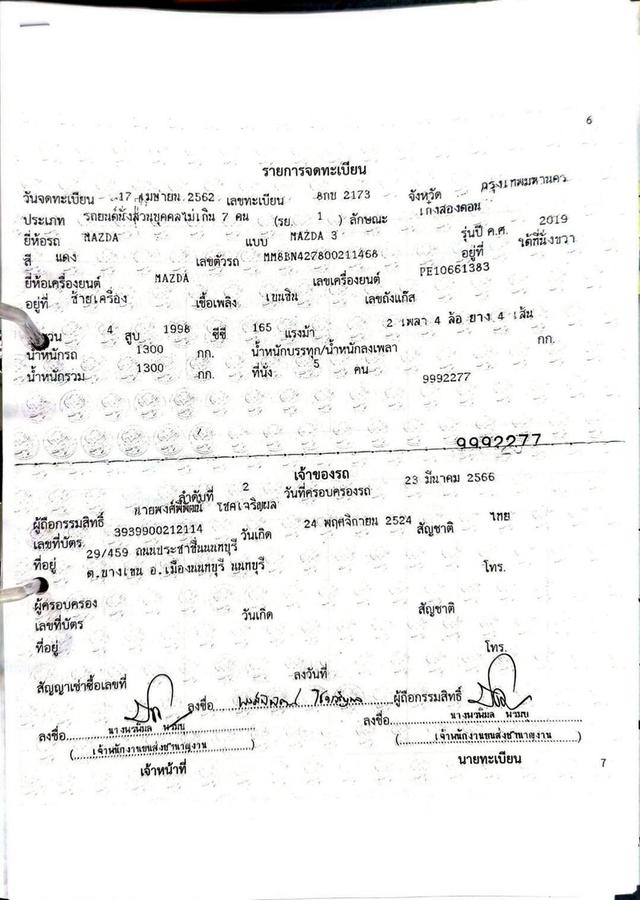 6
รายการจดทะเบียน
วันจดทะเบียน 17 เมษายน 2562 เลขทะเบียน 8กข 2173 จังหวัด กรุงเทพมหานคร
ประเภท รถยนต์นั่งส่วนบุคคลไม่เกิน 7 คน (รย. 1 ) ลักษณะ เก๋งสองตอน
ยี่ห้อรถ MAZDA แบบ MAZDA 3 รุ่นปี ค.ศ. 2019
สี แดง เลขตัวรถ MM8BN427800211468 อยู่ที่ ใต้ที่นั่งขวา
ยี่ห้อเครื่องยนต์ MAZDA เลขเครื่องยนต์ PE10661383
อยู่ที่ ซ้ายเครื่อง เชื้อเพลิง เบนซิน เลขถังแก๊ส
4 สูบ 1998 ซีซี 165 แรงม้า 2 เพลา 4 ล้อ ยาง 4 เส้น
น้ำหนักรถ 1300 กก. น้ำหนักบรรทุก/น้ำหนักลงเพลา กก.
น้ำหนักรวม 1300 กก. ที่นั่ง 5 คน 9992277
9992277
เจ้าของรถ
ลำดับที่ 2 วันที่ครอบครองรถ 23 มีนาคม 2566
ผู้ถือกรรมสิทธิ์ นายพงศ์พิพัฒน์ โชคเจริญผล
เลขที่บัตร 3939900212114 วันเกิด 24 พฤศจิกายน 2524 สัญชาติ ไทย
ที่อยู่ 29/459 ถนนประชาชื่นนนทบุรี
ต.บางเขน อ.เมืองนนทบุรี นนทบุรี โทร.
ผู้ครอบครอง
เลขที่บัตร วันเกิด สัญชาติ
ที่อยู่ โทร.
สัญญาเช่าซื้อเลขที่ ลงวันที่
ลงชื่อ ผู้ถือกรรมสิทธิ์
ลงชื่อ นางนวนิมล ลงชื่อ นางนวนิมล
(เจ้าพนักงานขนส่งชำนาญงาน) (เจ้าพนักงานขนส่งชำนาญงาน)
เจ้าหน้าที่ นายทะเบียน
7